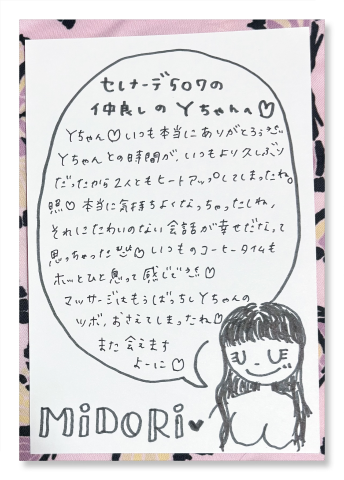 セレナーデ507の
仲良しの Yちゃんへ♡
Yちゃん♡いつも本当にありがとう
Yちゃんとの時間が、いつもより久しぶり
だったから2人ともヒートアップしてしまったね。
照♡本当に気持ちよくなっちゃったしね、
それにたわいのない会話が幸せだなって
思っちゃった♡いつものコーヒータイムも
ホッとひと息って感じで♡
マッサージはもうばっちしYちゃんの
ツボ、おさえてしまったね♡
また会えます
よーに♡
MiDORi♥